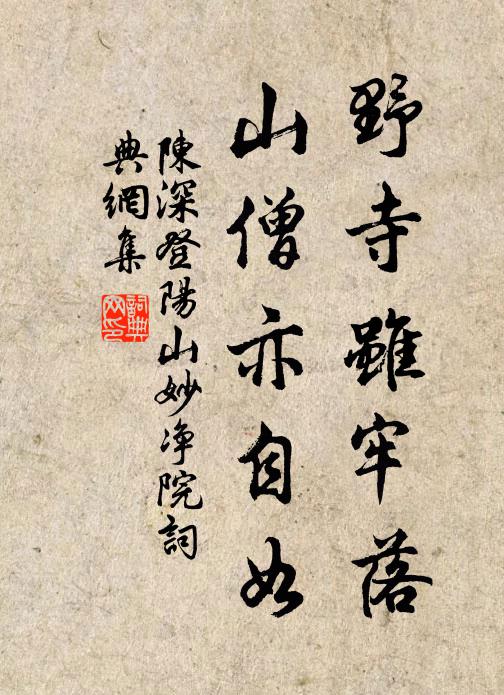 野寺雖牢落
山僧亦自如
陳深登陽山妙净院詞
典網集
詞典網印